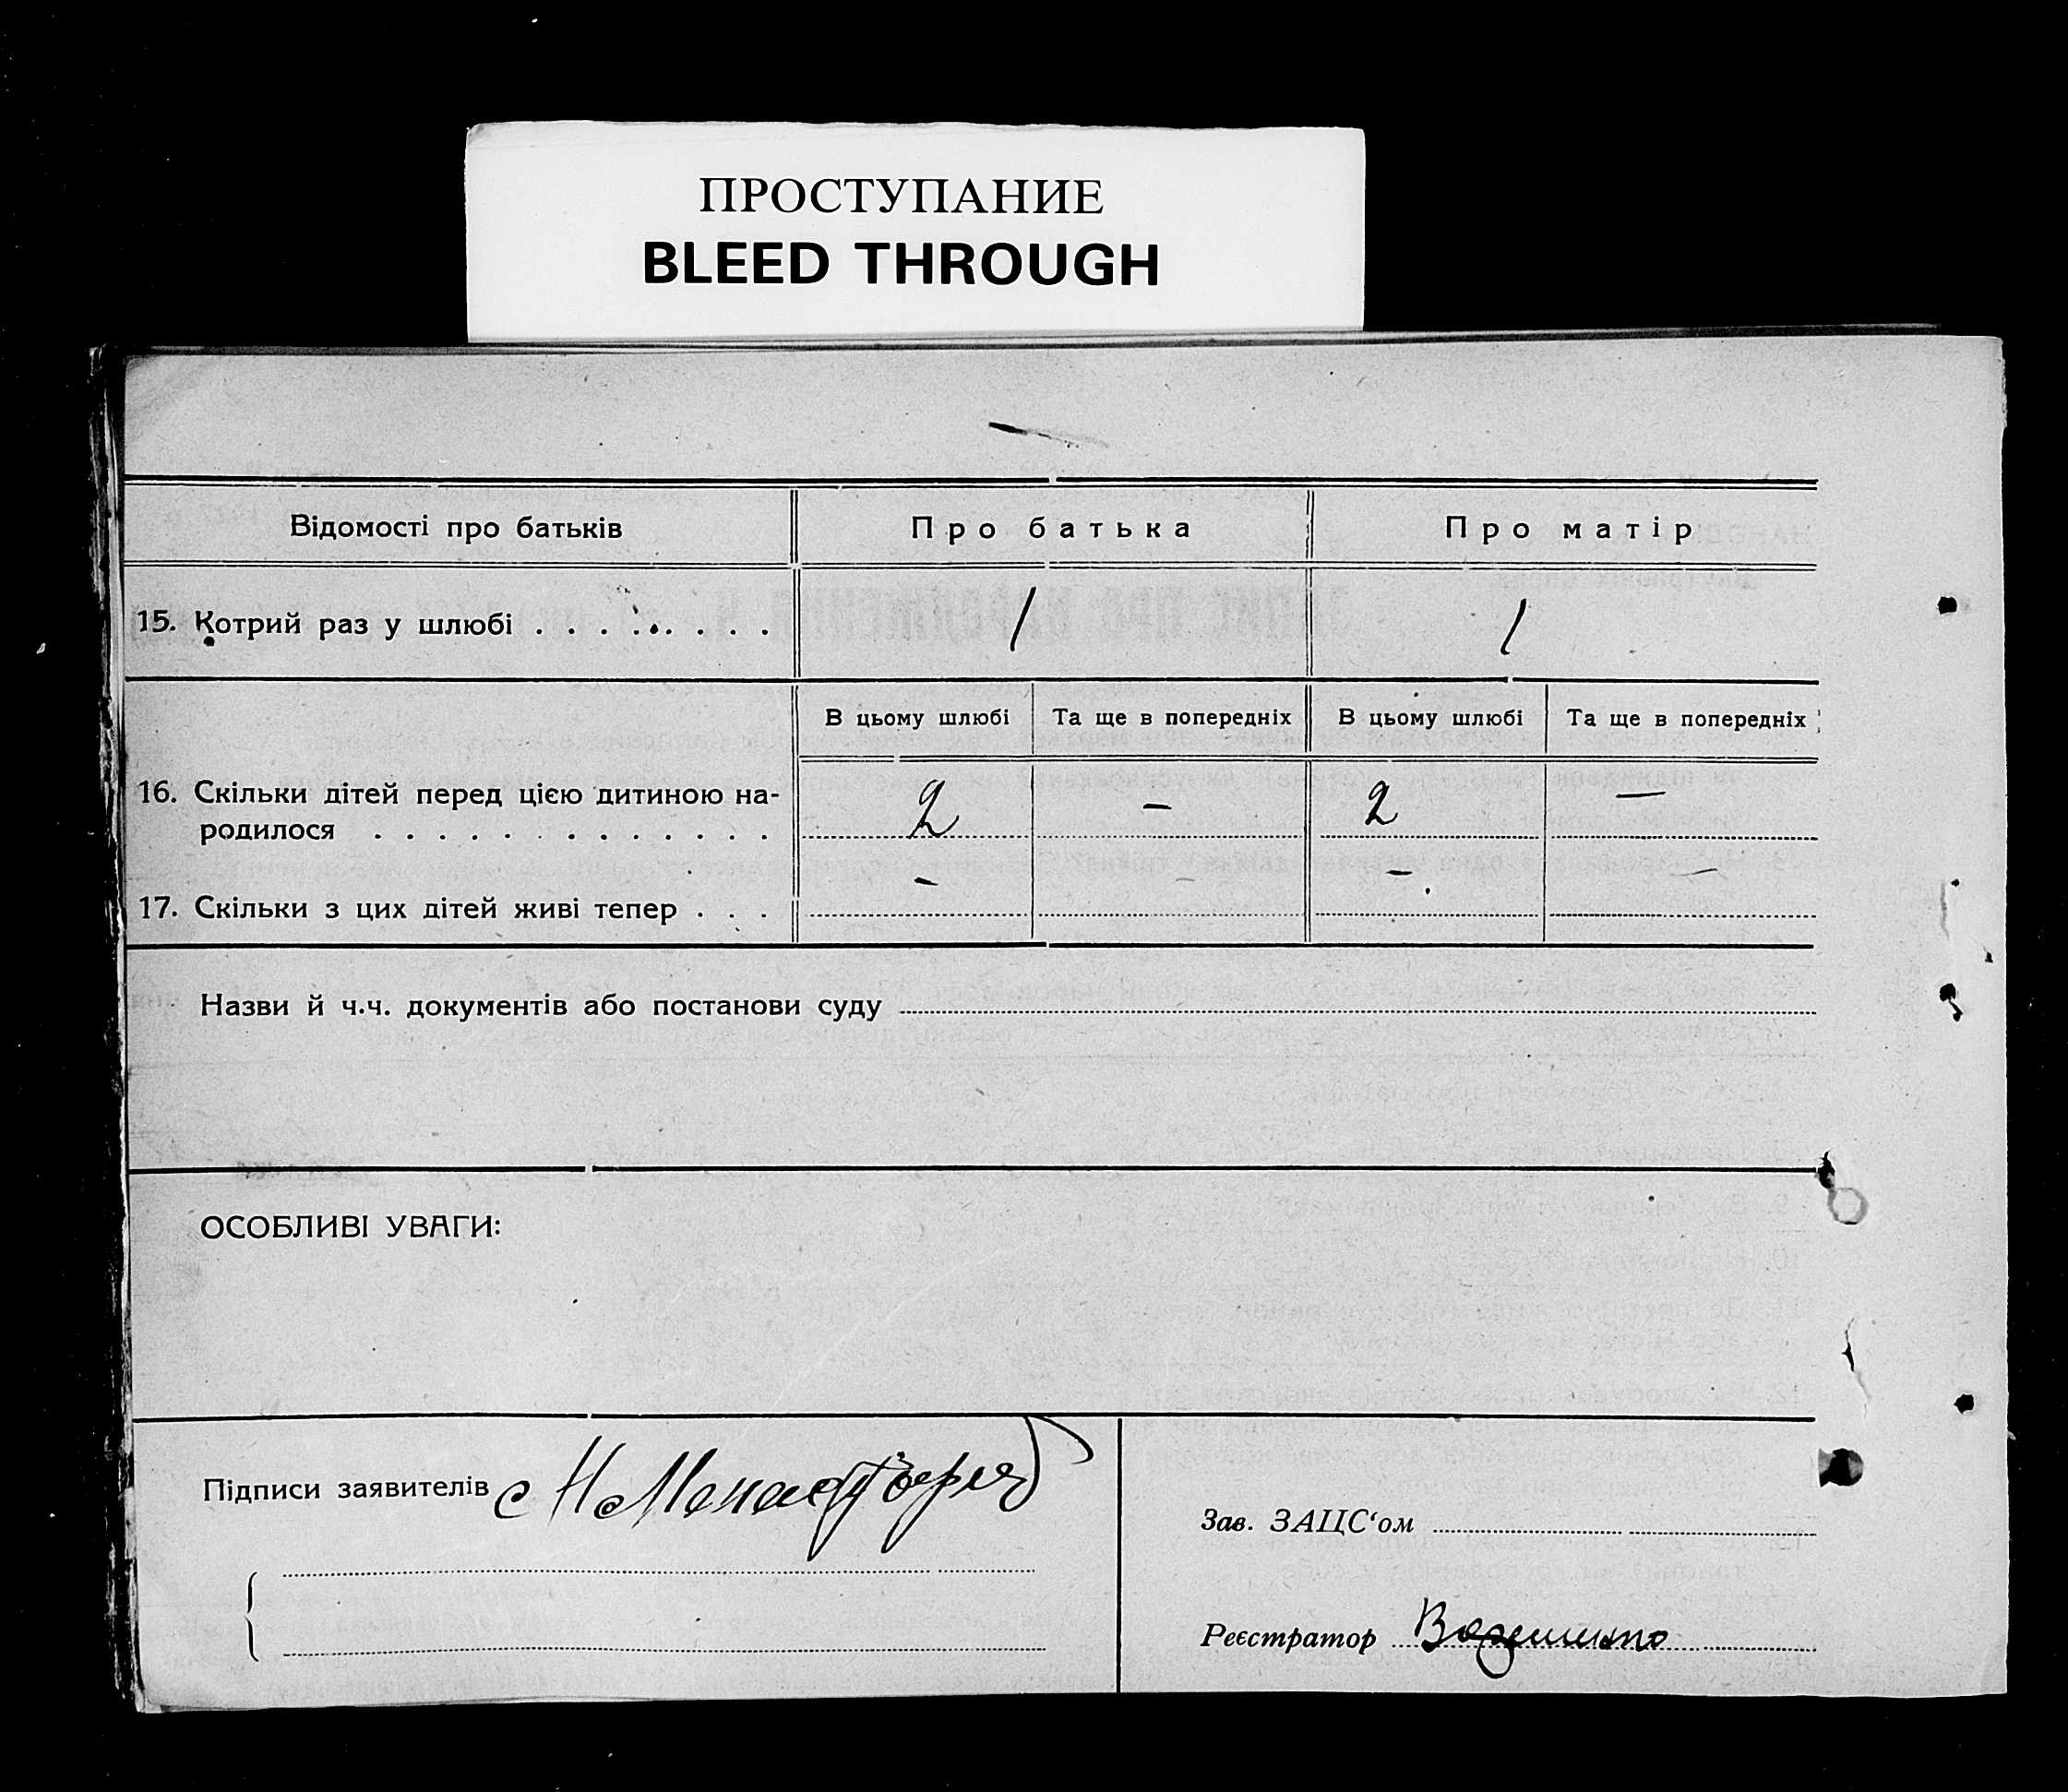 ПРОСТУПАНИЕ
BLEED THROUGH
Відомості про батьків Про батька Про матір
15. Котрий раз у шлюбі . . . . . . . . 1 1
В цьому шлюбі Та ще в попередніх В цьому шлюбі Та ще в попередніх
16. Скільки дітей перед цією дитиною на- 2 — 2 —
родилося . . . . . . . . . . . . .
17. Скільки з цих дітей живі тепер . . . - - - -
Назви й ч.ч. документів або постанови суду
ОСОБЛИВІ УВАГИ:
Підписи заявителів
Зав. ЗАЦС‘ом
Реєстратор